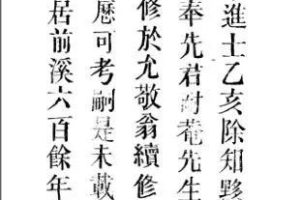 進士乙亥除知黟
奉先君菴先生
修於允敬翁續修
厯可考嗣是未載
居前溪六百餘年